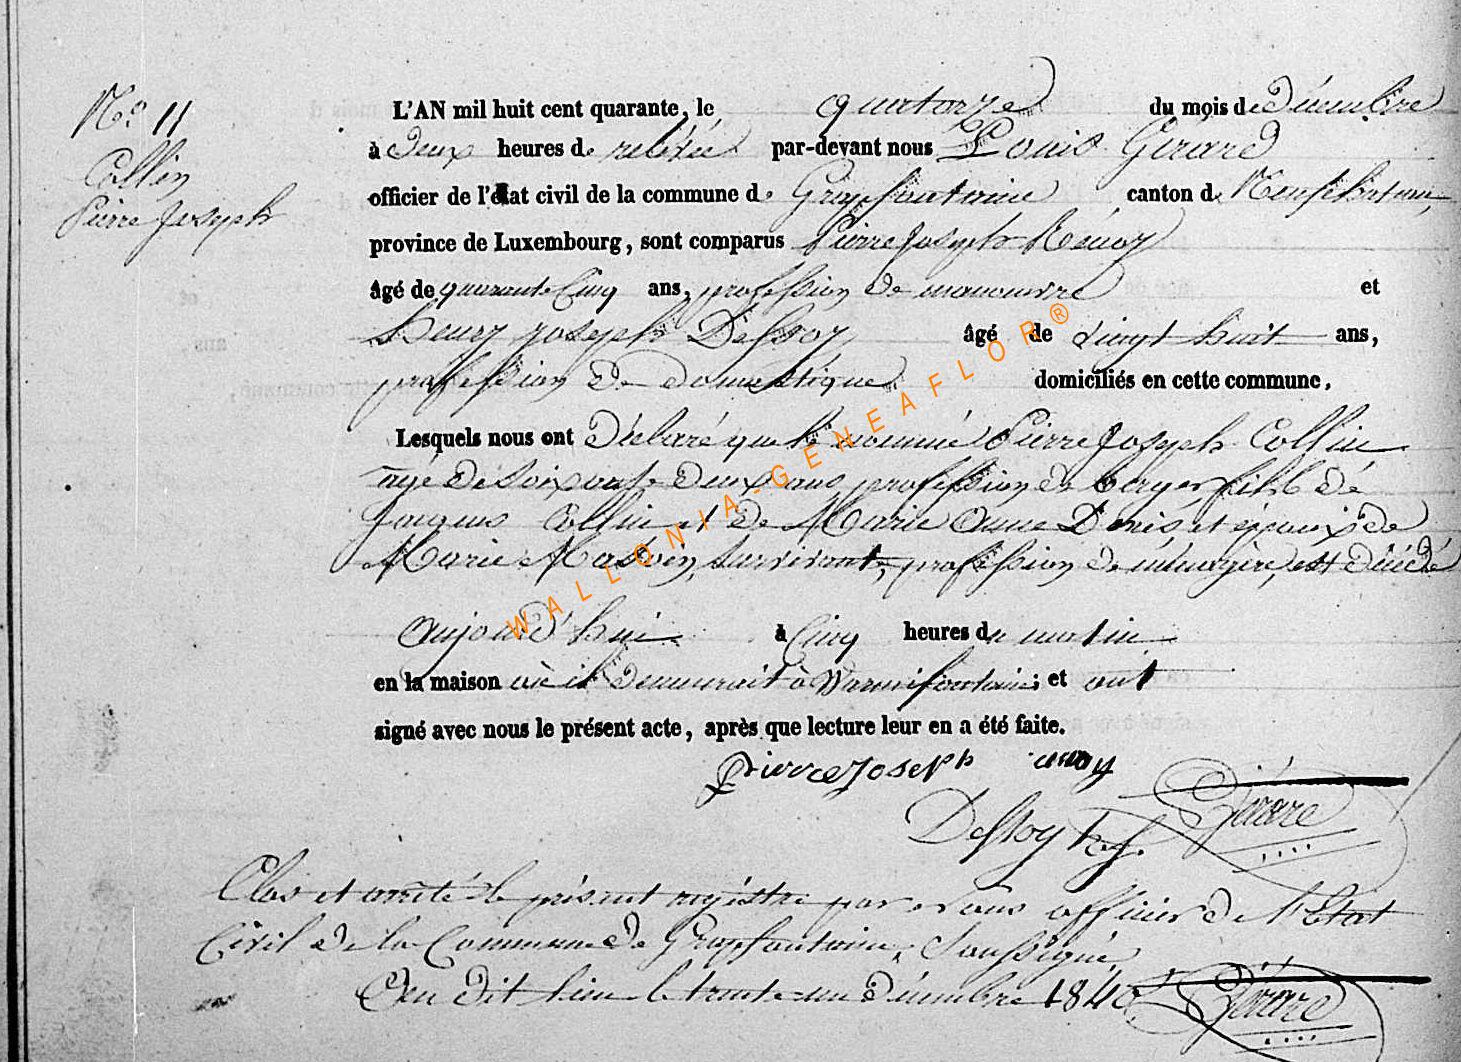 N.° 11
Collin
Pierre Joseph
L'AN mil huit cent quarante, le quatorze du mois de décembre
à deux heures de relevée par-devant nous Louis Gérard
officier de l'état civil de la commune de Grapfontaine canton de Neufchateau,
province de Luxembourg, sont comparus Pierre Joseph
âgé de quarante Cinq ans, profession de manouvre et
henry joseph Dessoy âgé de vingt huit ans,
profession de domestique domiciliés en cette commune,
Lesquels nous ont déclaré que le nommé Pierre Joseph Collin
agé de soixante deux ans profession de berger fils de
Jacques Collin et de Marie Anne Denis, et époux de
Marie survivante, profession de ménagère, est décédé
aujourd'hui à Cinq heures du matin
en la maison où il demeurait à Warmifontaine; et ont
signé avec nous le présent acte, après que lecture leur en a été faite.
Pierre Joseph
Dessoy h. j. Gérard
Clos et arrêté le présent registre par nous officier de l'Etat
Civil de la Commune de Grapfontaine, Soussigné,
Au dit lieu le trente un décembre 1840. Gérard
WALLONIA-GENEAFLOR®